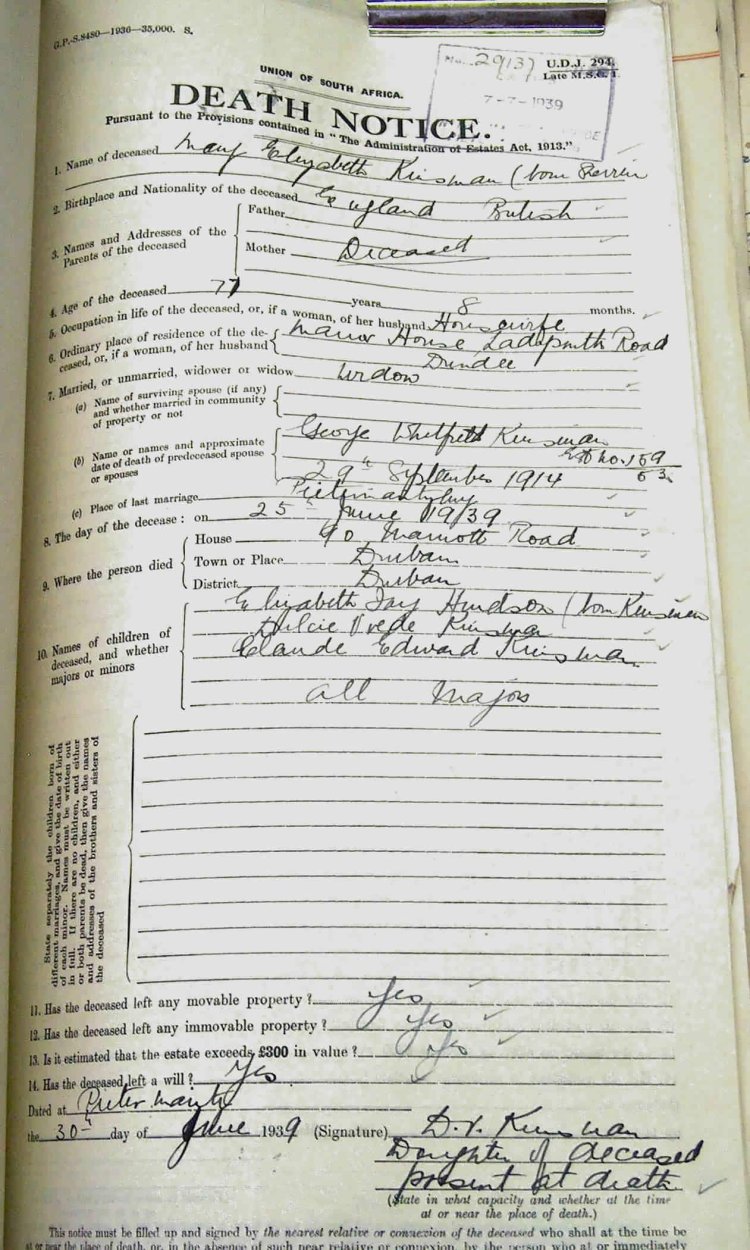 G.P.-S.8480—1936—35,000. S.
U.D.J. 294.
Late M.S.C. 1.
No. 2913
7-7-1939
UNION OF SOUTH AFRICA.
DEATH NOTICE.
Pursuant to the Provisions contained in "The Administration of Estates Act, 1913."
1. Name of deceased Mary Elizabeth Kinsman (born
2. Birthplace and Nationality of the deceased England British
3. Names and Addresses of the Parents of the deceased
Father
Mother Deceased
4. Age of the deceased 77 years 8 months.
5. Occupation in life of the deceased, or, if a woman, of her husband Housewife
6. Ordinary place of residence of the deceased, or, if a woman, of her husband Manor House Ladysmith Road
Dundee
7. Married, or unmarried, widower or widow Widow
(a) Name of surviving spouse (if any) and whether married in community of property or not
(b) Name or names and approximate date of death of predeceased spouse or spouses
George Kinsman
Est No. 159
63
29th September 1914
(c) Place of last marriage Pietermaritzburg
8. The day of the decease: on 25 June 1939
9. Where the person died
House 90 Marriott Road
Town or Place Durban
District Durban
10. Names of children of deceased, and whether majors or minors
Elizabeth Hudson (born Kinsman
Dulcie Kinsman
Claude Edward Kinsman
all Majors
State separately the children born of
different marriages, and give the date of birth
of each minor. Names must be written out
in full. If there are no children, and either
or both parents be dead, then give the names
and addresses of the brothers and sisters of
the deceased
11. Has the deceased left any movable property? Yes
12. Has the deceased left any immovable property? Yes
13. Is it estimated that the estate exceeds £300 in value? Yes
14. Has the deceased left a will? Yes
Dated at
the 30th day of June 1939 (Signature) D. V. Kinsman
Daughter of deceased
present at death
(State in what capacity and whether at the time
at or near the place of death.)
This notice must be filled up and signed by the nearest relative or connexion of the deceased who shall at the time be
at or near the place of death, or, in the absence of such near relative or connexion, by the person who at or immediately